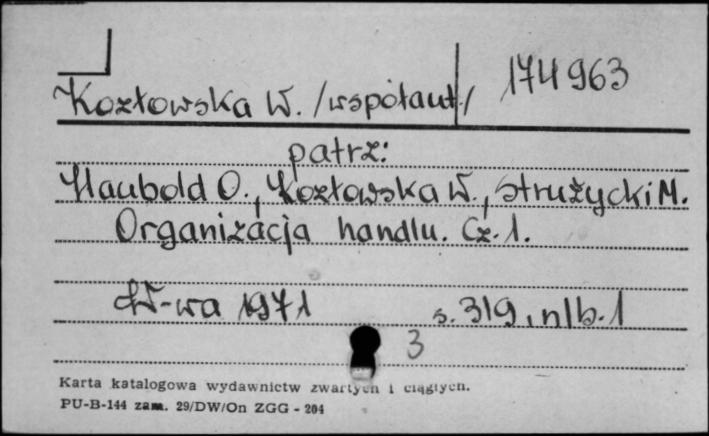 174963
Kozłowska W. /współaut./
patrz:
Haubold O., Kozłowska W., Strużycki M.
Organizacja handlu. Cz. 1.
W-wa 1971 s. 319, nlb. 1
3
Karta katalogowa wydawnictw zwartych i ciągłych.
PU-B-144 zam. 29/DW/On ZGG - 204